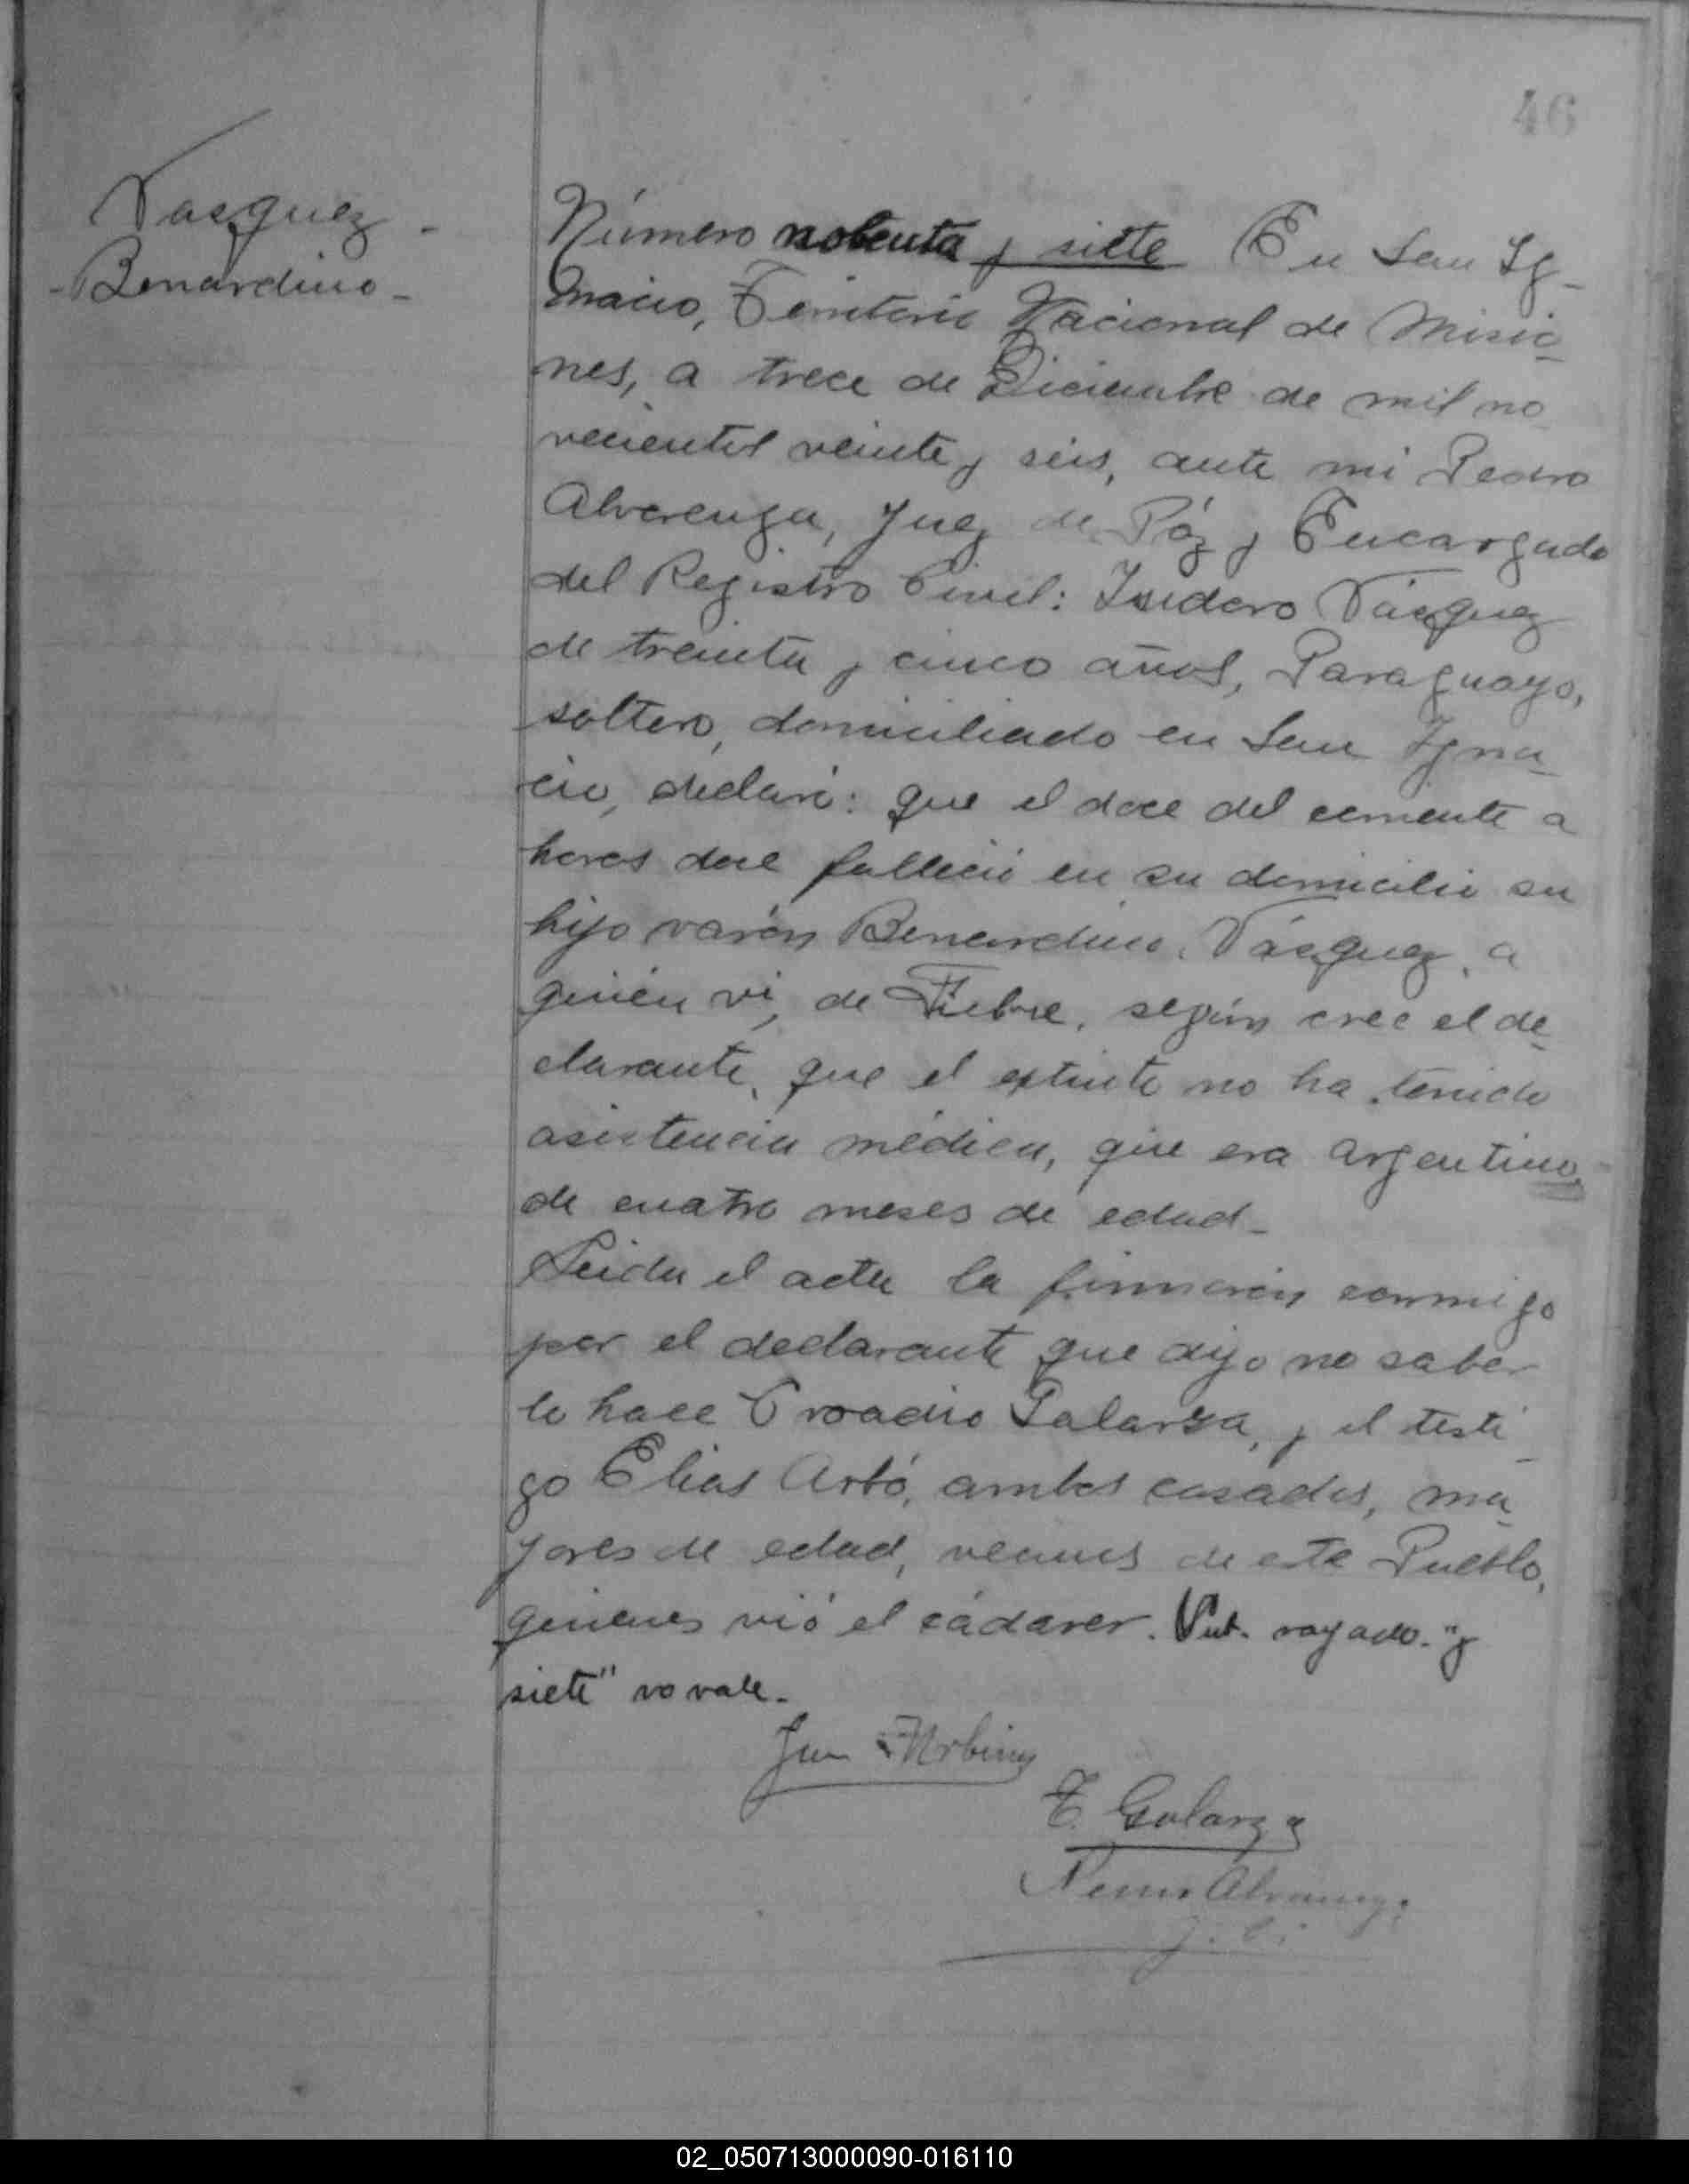 46
Vasquez -
- Benardino -
Número nobenta y siete En San Ig-
nacio, Territorio Nacional de Misio-
nes, a trece de Diciembre de mil no
vecientos veinte y seis, ante mi Pedro
Alverenga, Juez de Páz y Encargado
del Registro Civil: Isidoro Vásquez
de treinta y cinco años, Paraguayo,
soltero, domiciliado en San Igna-
cio, declaró: que el doce del corriente a
horas doce falleció en su domicilio su
hijo varón Benardino Vásquez, a
quién vi, de Fiebre, según cree el de-
clarante, que el extinto no ha tenido
asistencia médica, que era argentino,
de cuatro meses de edad -
Leida el acta la firmarón conmigo
por el declarante que dijo no saber
lo hace Galarza, y el testi-
go Elias Arbó, ambos casados, ma-
yores de edad, vecinos de este Pueblo,
quienes vió el cádaver. rayado. "y
siete" no vale.
Galarza
02_050713000090-016110